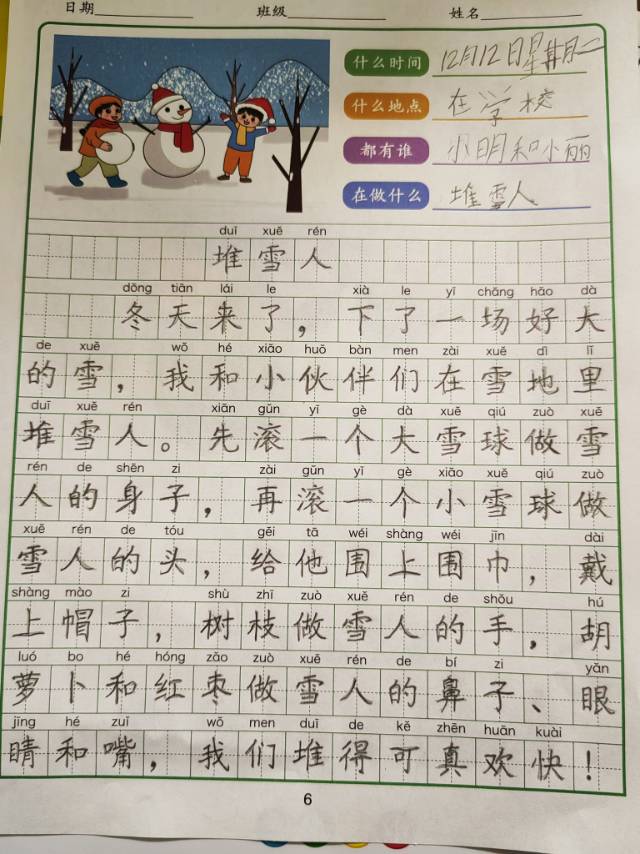 日期 班级 姓名
什么时间 12月12日星期二
什么地点 在学校
都有谁 小明和小丽
在做什么 堆雪人
duī xuě rén
堆雪人
dōng tiān lái le xià le yī chǎng hǎo dà
冬天来了，下了一场好大
de xuě wǒ hé xiǎo huǒ bàn men zài xuě dì lǐ
的雪，我和小伙伴们在雪地里
duī xuě rén xiān gǔn yī gè dà xuě qiú zuò xuě
堆雪人。先滚一个大雪球做雪
rén de shēn zi zài gǔn yī gè xiǎo xuě qiú zuò
人的身子，再滚一个小雪球做
xuě rén de tóu gěi tā wéi shàng wéi jīn dài
雪人的头，给他围上围巾，戴
shàng mào zi shù zhī zuò xuě rén de shǒu hú
上帽子，树枝做雪人的手，胡
luó bo hé hóng zǎo zuò xuě rén de bí zi yǎn
萝卜和红枣做雪人的鼻子、眼
jīng hé zuǐ wǒ men duī de kě zhēn huān kuài
睛和嘴，我们堆得可真欢快！
6